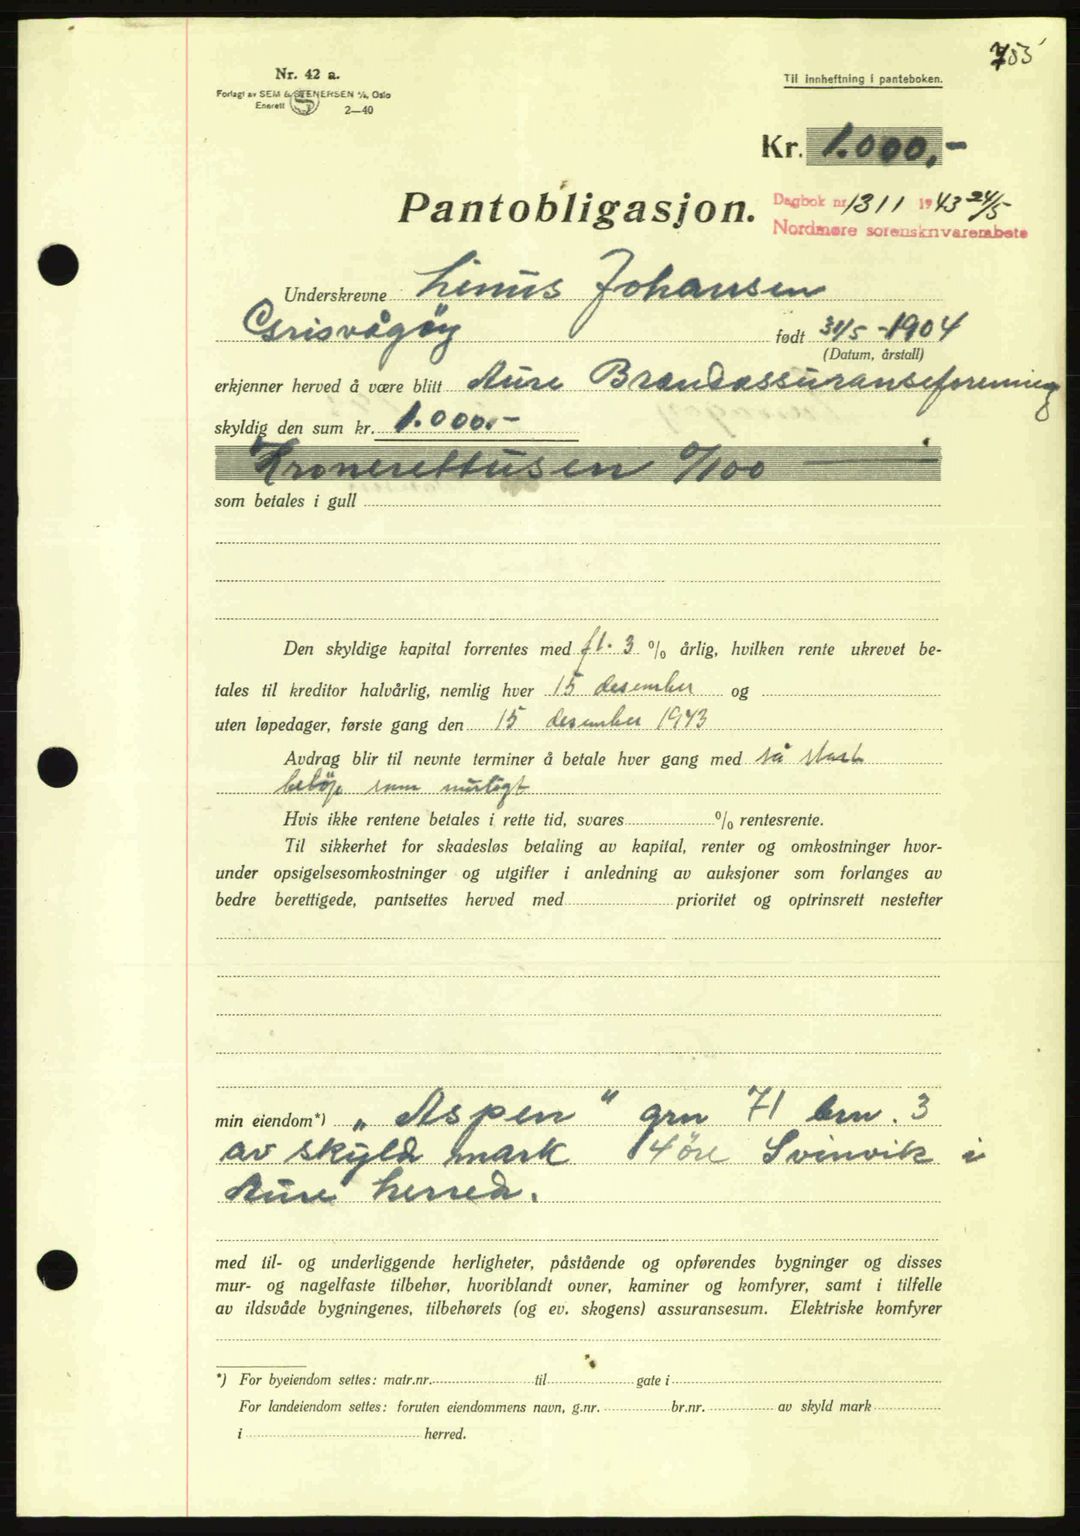 755
Nr. 42 a.
Forlagt av SEM & STENERSEN A/S, Oslo
Enerett
2—40
Til innheftning i panteboken.
Kr. 1.000,-
Pantobligasjon.
Dagbok nr. 1311 1943 24/5
Nordmøre sorenskriverembete
Underskrevne Linus Johansen
Grisvågøy født 31/5 -1904
(Datum, årstall)
erkjenner herved å være blitt Aure Brandassuranseforening
skyldig den sum kr. 1.000.-
Kronerettusen 0/100
som betales i gull
Den skyldige kapital forrentes med fl. 3 % årlig, hvilken rente ukrevet be-
tales til kreditor halvårlig, nemlig hver 15 desember og
uten løpedager, første gang den 15 desember 1943
Avdrag blir til nevnte terminer å betale hver gang med så stort
beløp som muligt
Hvis ikke rentene betales i rette tid, svares % rentesrente.
Til sikkerhet for skadesløs betaling av kapital, renter og omkostninger hvor-
under opsigelsesomkostninger og utgifter i anledning av auksjoner som forlanges av
bedre berettigede, pantsettes herved med prioritet og optrinsrett nestefter
min eiendom*) „Aspen" grn 71 brn. 3
av skyld mark 14 øre Svinvik i
Aure herred.
med til- og underliggende herligheter, påstående og opførendes bygninger og disses
mur- og nagelfaste tilbehør, hvoriblandt ovner, kaminer og komfyrer, samt i tilfelle
av ildsvåde bygningenes, tilbehørets (og ev. skogens) assuransesum. Elektriske komfyrer
*) For byeiendom settes: matr.nr. til gate i
For landeiendom settes: foruten eiendommens navn, g.nr. br.nr. av skyld mark
i herred.